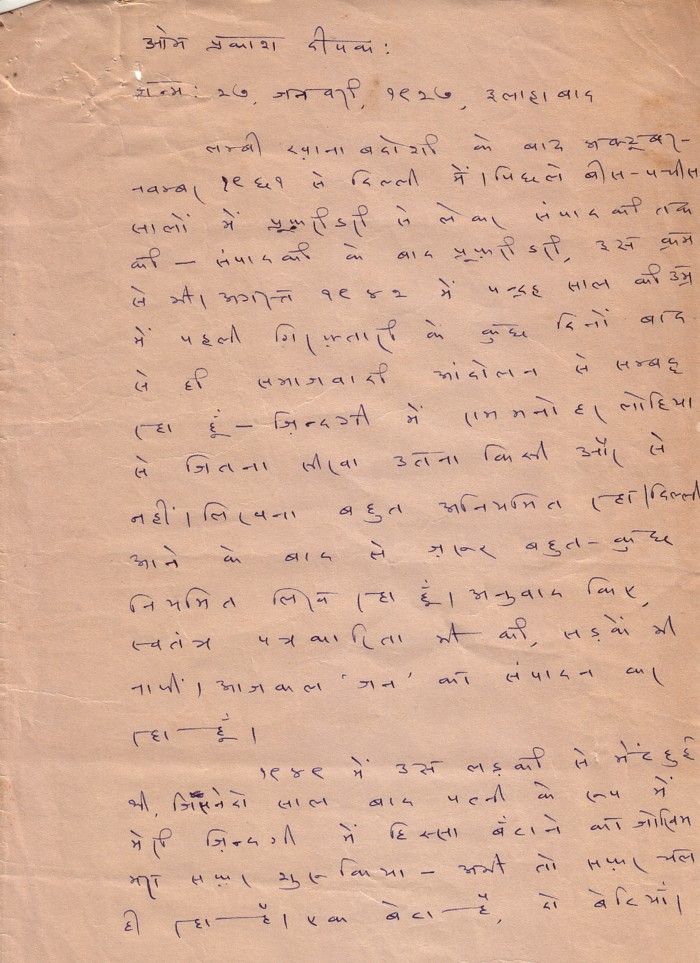 ओम प्रकाश दीपक :
जन्म : २७, जनवरी, १९२७, इलाहाबाद
लम्बी ख़ाना बदोशी के बाद अक्टूबर-
नवम्बर १९६१ से दिल्ली में। पिछले बीस-पचीस
सालों में प्रूफ़रीडरी से लेकर संपादकी तक
की — संपादकी के बाद प्रूफ़रीडरी, इस क्रम
से भी। अगस्त १९४२ में पन्द्रह साल की उम्र
में पहली गिरफ़्तारी के कुछ दिनों बाद
से ही समाजवादी आंदोलन से सम्बद्ध
रहा हूँ — ज़िन्दगी में राममनोहर लोहिया
से जितना सीखा उतना किसी और से
नहीं। लिखना बहुत अनियमित रहा। दिल्ली
आने के बाद से ज़रूर बहुत-कुछ
नियमित लिख रहा हूँ। अनुवाद किए,
स्वतंत्र पत्रकारिता भी की, सड़कें भी
नापीं। आजकल 'जन' का संपादन कर
रहा हूँ।
१९४९ में उस लड़की से भेंट हुई
थी, जिसने दो साल बाद पत्नी के रूप में
मेरी ज़िन्दगी में हिस्सा बँटाने का जोखिम
भरा सफ़र शुरू किया — अभी तो सफ़र चल
ही रहा है। एक बेटा है, दो बेटियाँ।